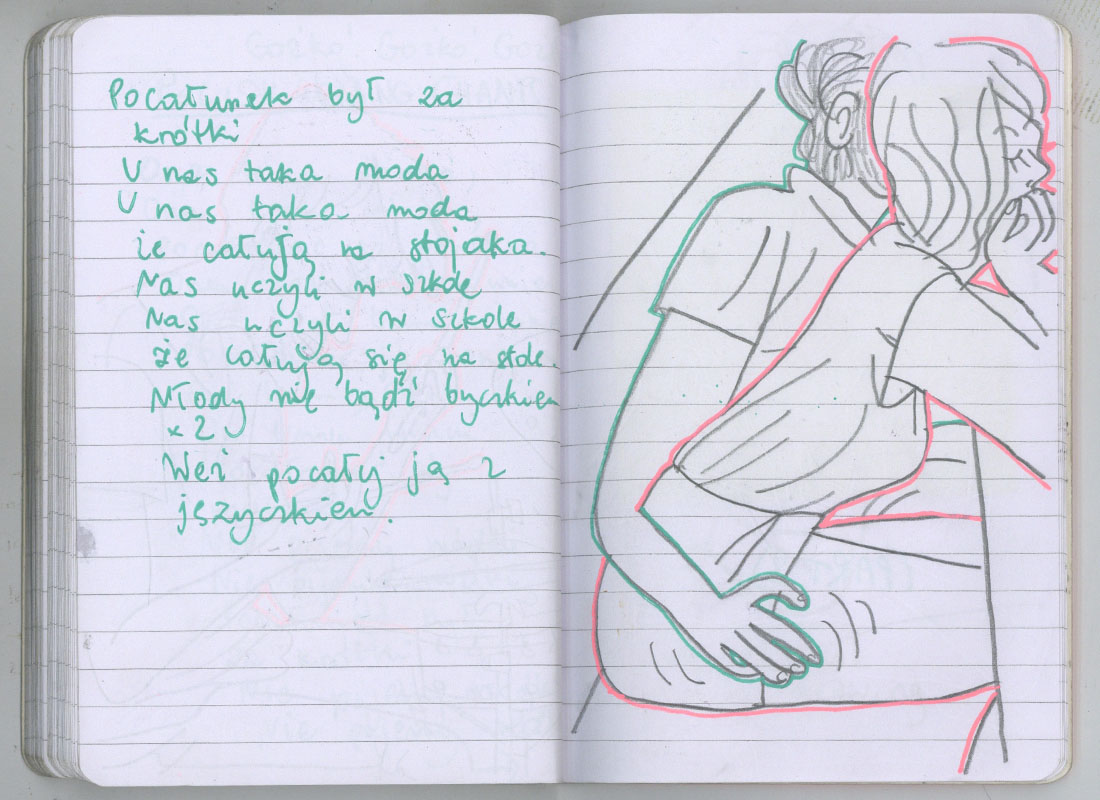 Pocałunek był za
krótki
U nas taka moda
U nas taka moda
że całują na stojaka.
Nas uczyli w szkole
Nas uczyli w szkole
że całują się na stole.
Młody nie bądź byczkiem
x 2
Weź pocałuj ją z
języczkiem.